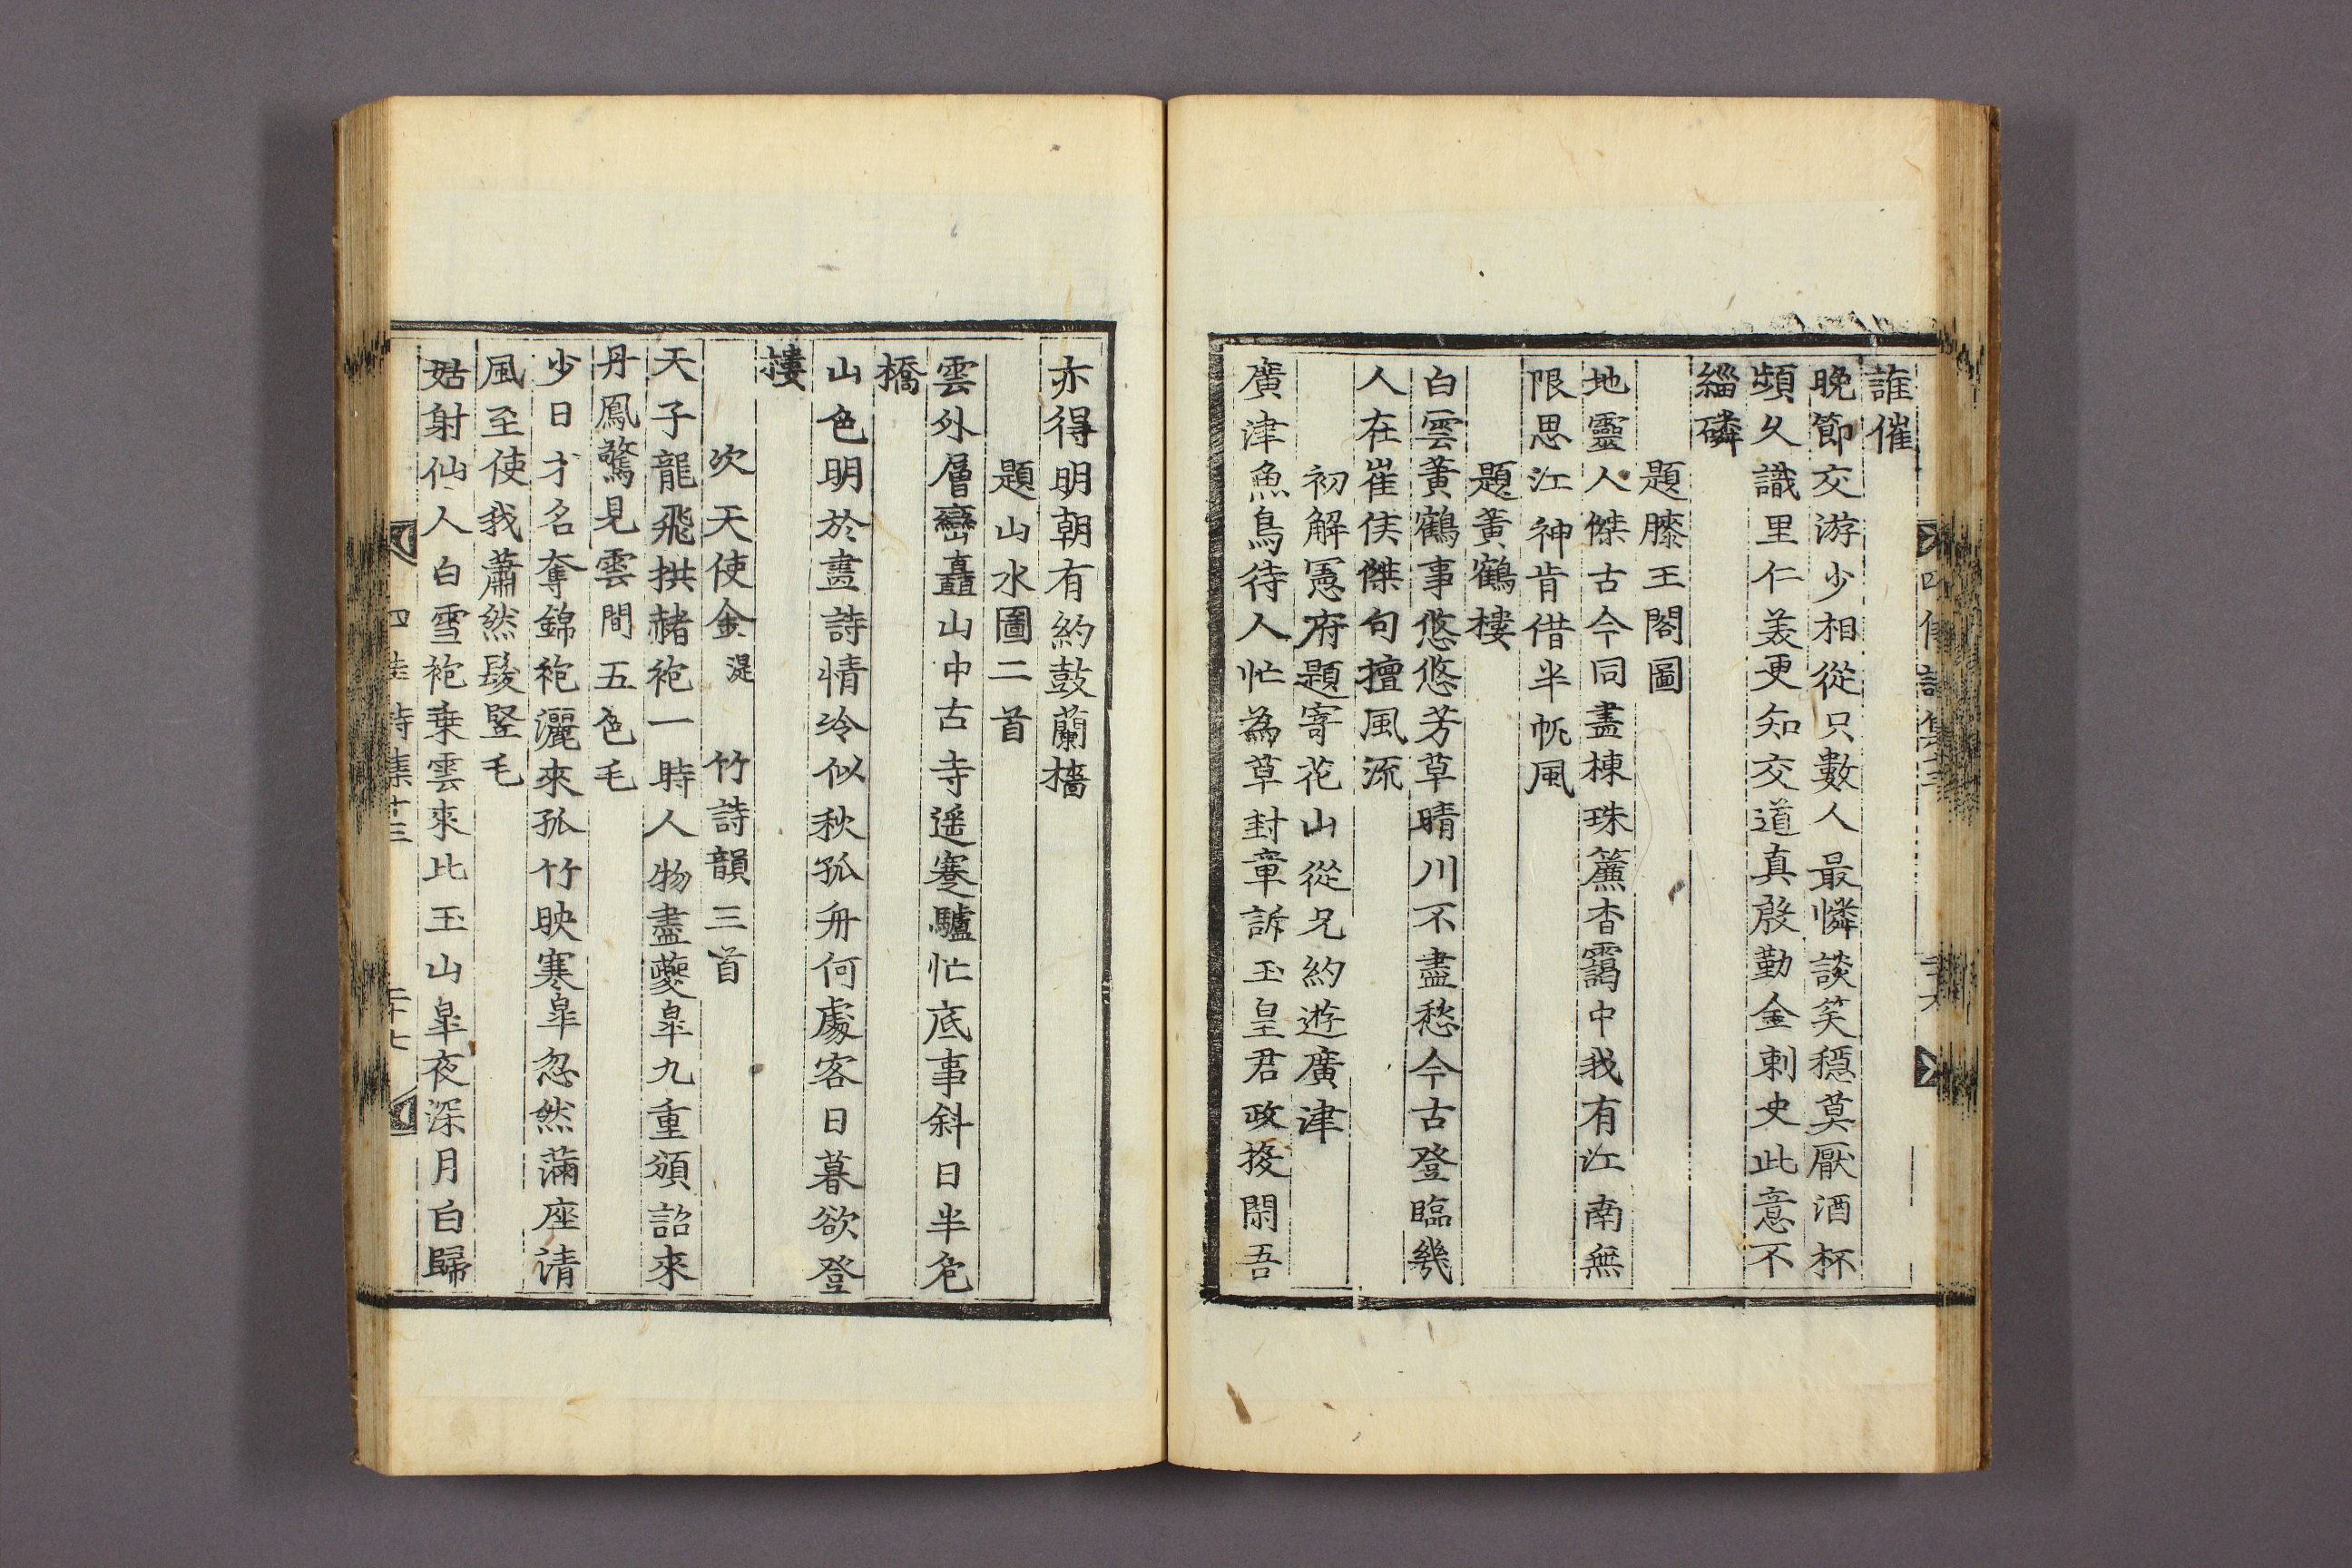 誰催
晚節交游少相從只數人最憐談笑穩莫厭酒杯
頻久識里仁美更知交道真殷勤金剌史此意不
緇磷
題滕王閣圖
地靈人傑古今同畫棟珠簾杳靄中我有江南無
限思江神肯借半帆風
題黃鶴樓
白雲黃鶴事悠悠芳草晴川不盡愁今古登臨幾
人在崔侯傑句擅風流
初解憲府題寄花山從兄約遊廣津
廣津魚鳥待人忙為草封章訴玉皇君政投閑吾
亦得明朝有約鼓蘭檣
題山水圖二首
雲外層巒矗山中古寺遥蹇驢忙底事斜日半危
橋
山色明於畫詩情冷似秋孤舟何處客日暮欲登
樓
次天使金湜竹詩韻三首
天子龍飛拱赭袍一時人物盡夔皐九重頒詔來
丹鳳驚見雲間五色毛
少日才名奪錦袍灑來孤竹映寒皐忽然滿座清
風至使我蕭然髮竪毛
姑射仙人白雪袍乗雲來比玉山皐夜深月白歸
四佳詩集十三 二十七